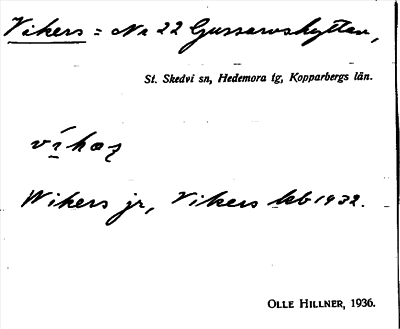 Vikers = No 22 Gussarvshyttan,
St. Skedvi sn, Hedemora tg, Kopparbergs län.
Wikers jr, Vikers kb 1932.
OLLE HILLNER, 1936.